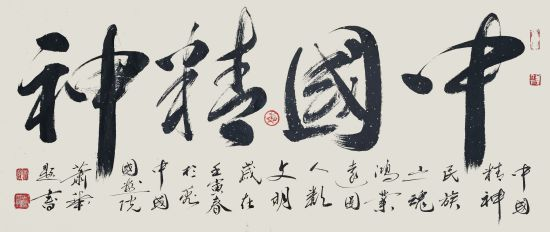 中國精神
中國
精神
民族
之魂
鴻業
遠圖
人類
文明
歲在
壬寅春
於
中國
國 院
蕭
書